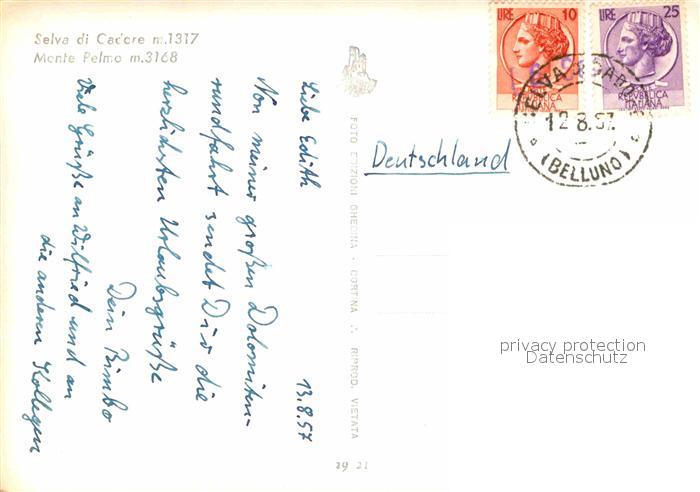 Selva di Cadore m.1317
Monte Pelmo m.3168
Liebe Edith 13.8.57
Von meiner großen Dolomiten-
rundfahrt sendet Dir die
herzlichsten Urlaubsgrüße
Dein Bimbo
Viele Grüße an Wilfried und an
die anderen Kollegen
FOTO EDIZIONI GHEDINA - CORTINA ∴ RIPROD. VIETATA
19 21
LIRE 10
REPUBBLICA
ITALIANA
LIRE 25
REPUBBLICA
ITALIANA
SELVA CADORE
12.8.57
(BELLUNO)
Deutschland
privacy protection
Datenschutz